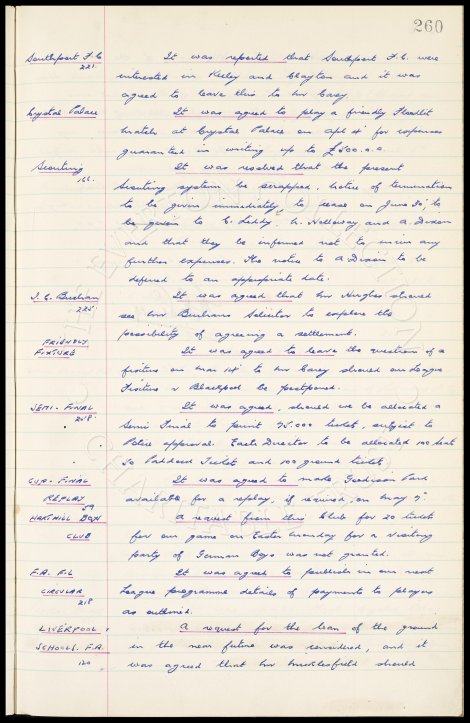 260
Southport F.C. It was reported that Southport F.C. were
221 interested in Keeley and Clayton and it was
agreed to leave this to Mr Carey.
Crystal Palace It was agreed to play a friendly Floodlit
Match at Crystal Palace on April 4th for expenses
guaranteed in writing up to £500.0.0.
Scouting It was resolved that the present
166. Scouting system be scrapped, notice of termination
to be given immediately, to cease on June 30, to
be given to C. Leddy, W. Holloway and A. Dixon
and that they be informed not to incur any
further expenses. The notice to A Dixon to be
deferred to an appropriate date.
It was agreed that Mr Hughes should
225 see Mr Burhans Solicitor to explore the
possibility of agreeing a settlement.
FRIENDLY
FIXTURE It was agreed to leave the question of a
fixture on Mar 14th to Mr Carey should our League
Fixture v Blackpool be postponed.
SEMI-FINAL It was agreed, should we be allocated a
258 Semi Final to print 75.000 tickets, subject to
Police approval. Each Director to be allocated 100 Seat
50 Paddock Tickets and 100 ground tickets.
CUP-FINAL It was agreed to make Goodison Park
REPLAY available for a replay, if required, on May 7th.
59
HARTHILL BOYS A request from this Club for 20 tickets
CLUB for our game on Easter Monday for a visiting
party of German Boys was not granted.
F.A. F.L It was agreed to publish in our next
CIRCULAR League programme details of payments to players
218 as outlined.
LIVERPOOL A request for the loan of the ground
SCHOOLS. F.A. in the near future was considered, and it
120 was agreed that Mr Micklesfield should